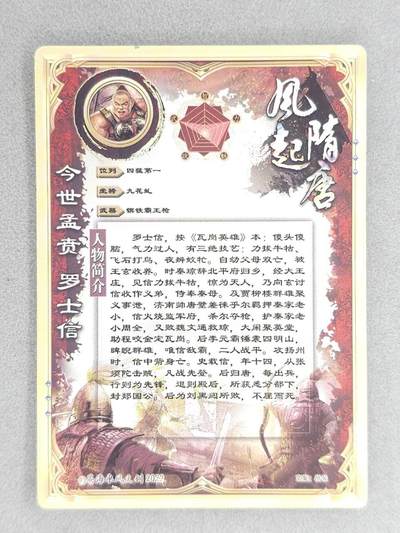 風起
隋唐
今世孟贲 罗士信
位列 四猛第一
坐骑 九花虬
武器 镔铁霸王枪
人物简介
罗士信，按《瓦岗英雄》本：傻头傻
脑，气力过人，有三绝技艺：力拔牛牯、
飞石打鸟、夜辨蚊牤。自幼父母双亡，被
王官收养。时秦琼辞北平府归乡，经大王
庄，见信力拔牛牯，惊为天人，乃向官讨
信收作义弟，侍奉秦母。及贾柳楼群雄聚
义事泄，济南帅唐璧差徕乎尔羁押秦家老
小，信火烧监军府，条尔夺枪，护秦家老
小周全，又败魏文通救琼，大闹聚英堂，
助程咬金定瓦岗。后李元霸锤衰四明山，
睥睨群雄，唯信敌霸，二人战平。攻扬州
时，信中箭身亡。史载信，年十四，从张
须陀击贼，凡战先登。后归唐，每出兵，
行则为先锋，退则殿后，所获悉分部下，
封郯国公。后为刘黑闼所败，不屈而死。